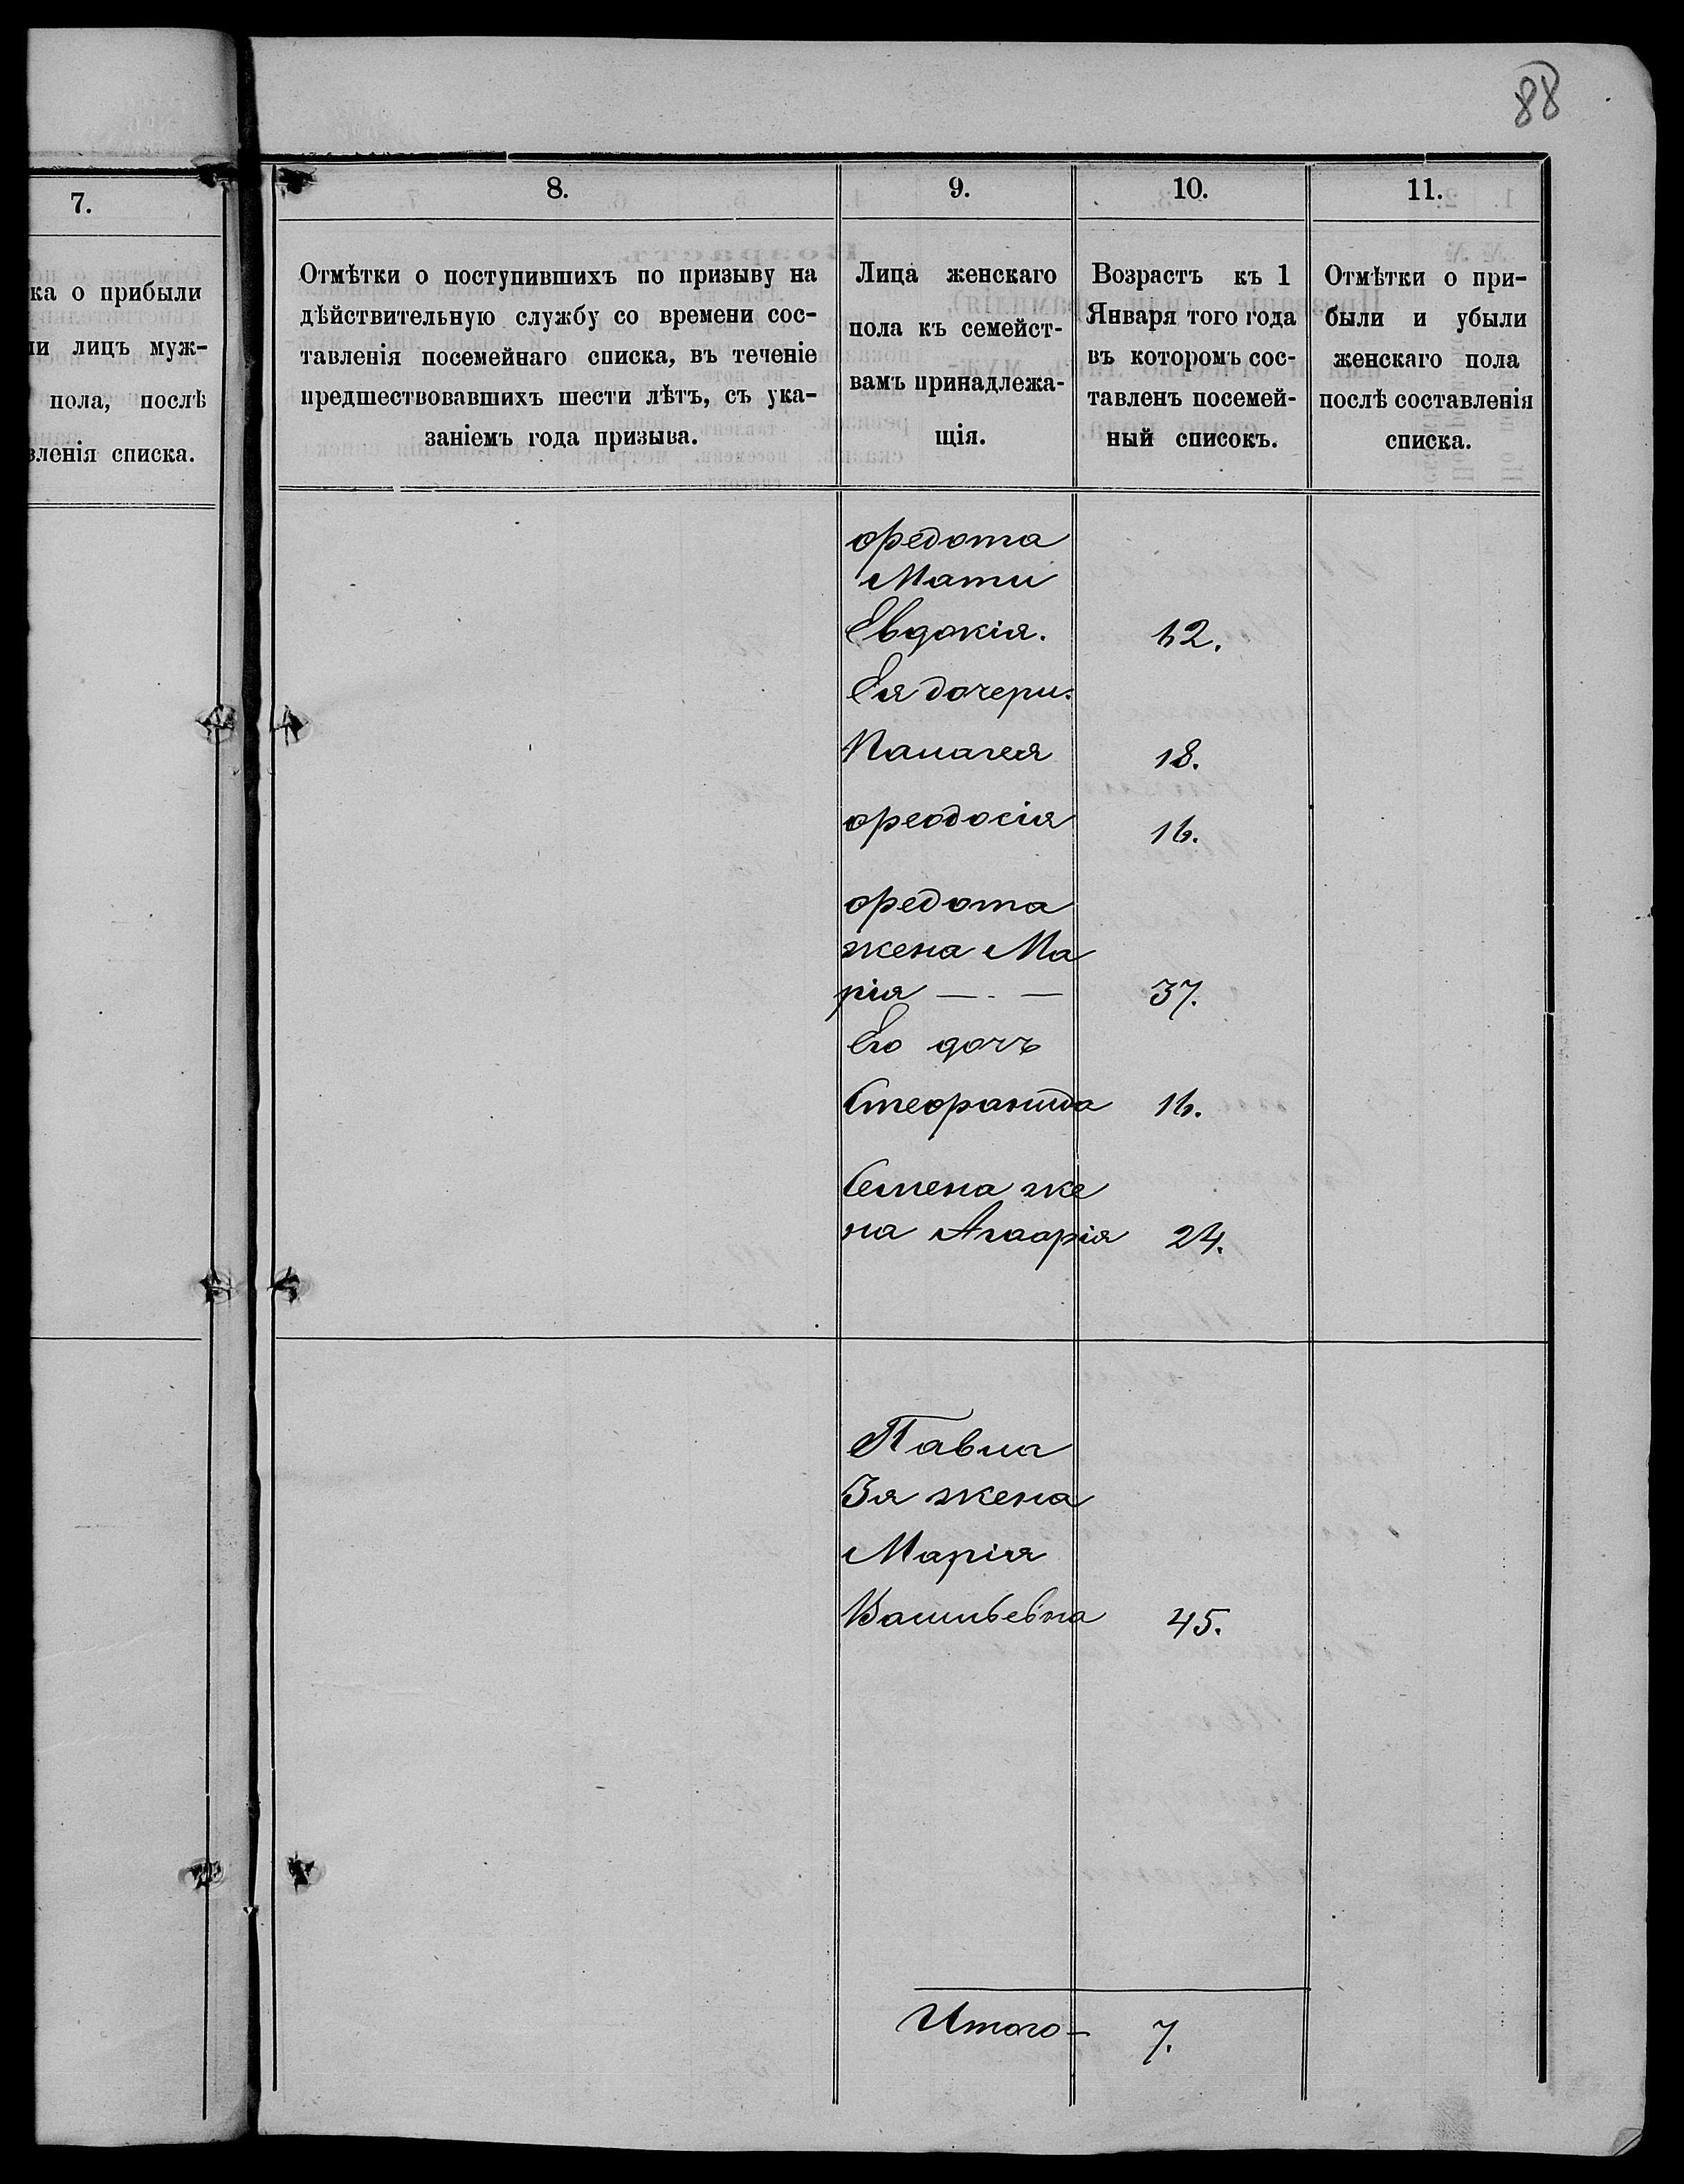 88
7.
ка о прибыли
ли лицъ муж-
пола, послѣ
вленія списка.
8.
Отмѣтки о поступившихъ по призыву на
дѣйствительную службу со времени сос-
тавленія посемейнаго списка, въ теченіе
предшествовавшихъ шести лѣтъ, съ ука-
заніемъ года призыва.
9.
Лица женскаго
пола къ семейст-
вамъ принадлежа-
щія.
10.
Возрастъ къ 1
Января того года
въ которомъ сос-
тавленъ посемей-
ный списокъ.
11.
Отмѣтки о при-
были и убыли
женскаго пола
послѣ составленія
списка.
Федота
Мати
Евдокія. 62.
Ея дочери:
Палагея 18.
Феодосія 16.
Федота
жена Ма
рія — . — 37.
Его дочь
Стефанида 16.
Семена же
на Агафія 24.
Павла
3я жена
Марія
Васильевна 45.
Итого — 7.